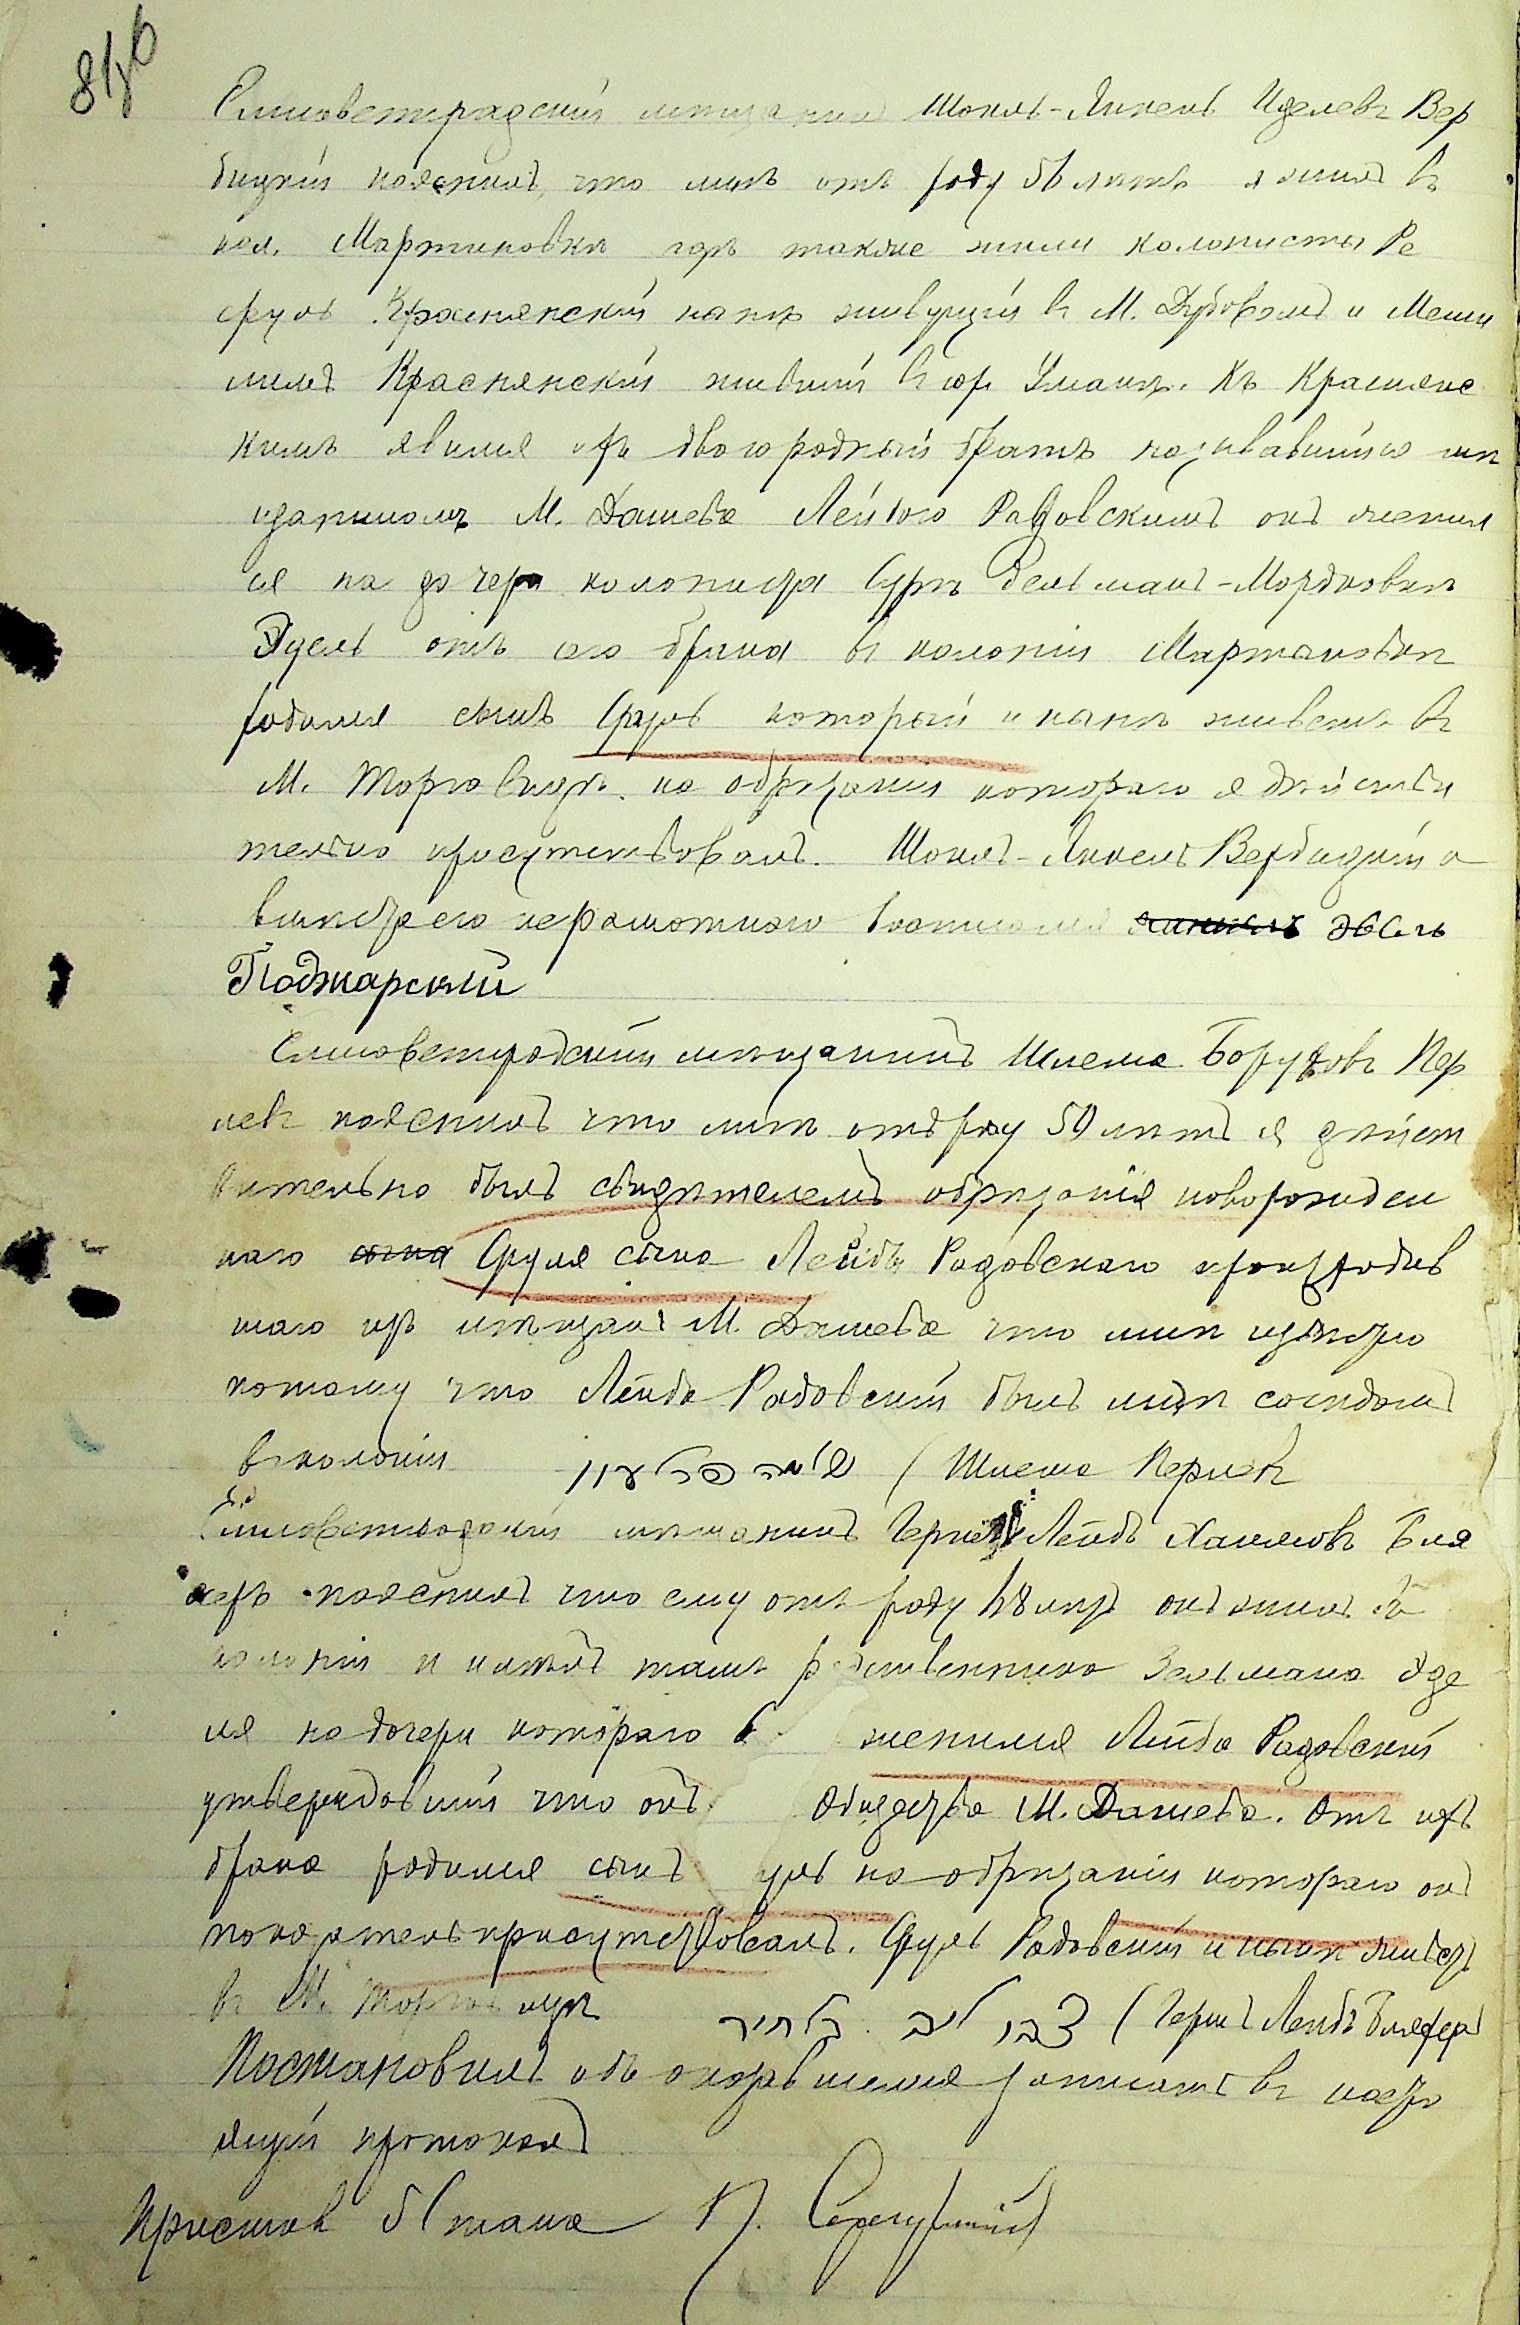 816
Елисаветградский мещанин Шоил-Янкель Иделев Вер
бицкий пояснил, что мне от роду 56 лет я жил в
кол. Мартиновке где также жили колонисты
Сруль Краснянский ныне живущий в М. Дубовом и
Краснянский живший в гор. Умани. К Краснянс
ким явился их двоюродный брат называвшийся ме
щанином М. Дашева Лейбою Радовским он женил
ся на дочери колониста Суре Зельман-Мордковне
Эдель от сего брака в колонии Мартыновке
родился сын Сруль который и ныне живет в
М. Торговице, на обрезании которого я действи
тельно присутствовал. Шоил-Янкель Вербицкий а
вместо его неграмотного росписался
Поджарский
Елисаветградский мещанин Шлема Борухов Пер
лев пояснил что мне от роду 50 лет я дейст
вительно был свидетелем обрезания новорожден
наго сына Сруля сына Лейбы Радовскаго происходив
шаго из мещан М. Дашева что мне известно
потому что Лейба Радовский был мне соседом
в колонии שלמה פערלעוו (Шлема Перлев
Елисаветградский мещанин Герш Лейб Хаимов Бля
хер пояснил что ему от роду 48 лет он жил в
колонии и имел там родственника Зельмана Эде
ля на дочери котораго женился Лейба Радовский
утверждовший что он общества М. Дашева. От их
брака родился сын уль на обрезании котораго он
показатель присутствовал. Сруль Радовский и ныне живет
в М. Торговице צבי ליב בלחיר (Герш Лейб Бляхер)
Постановил об оказавшемся записать в насто
ящий протокол
Пристав 5 стана П.